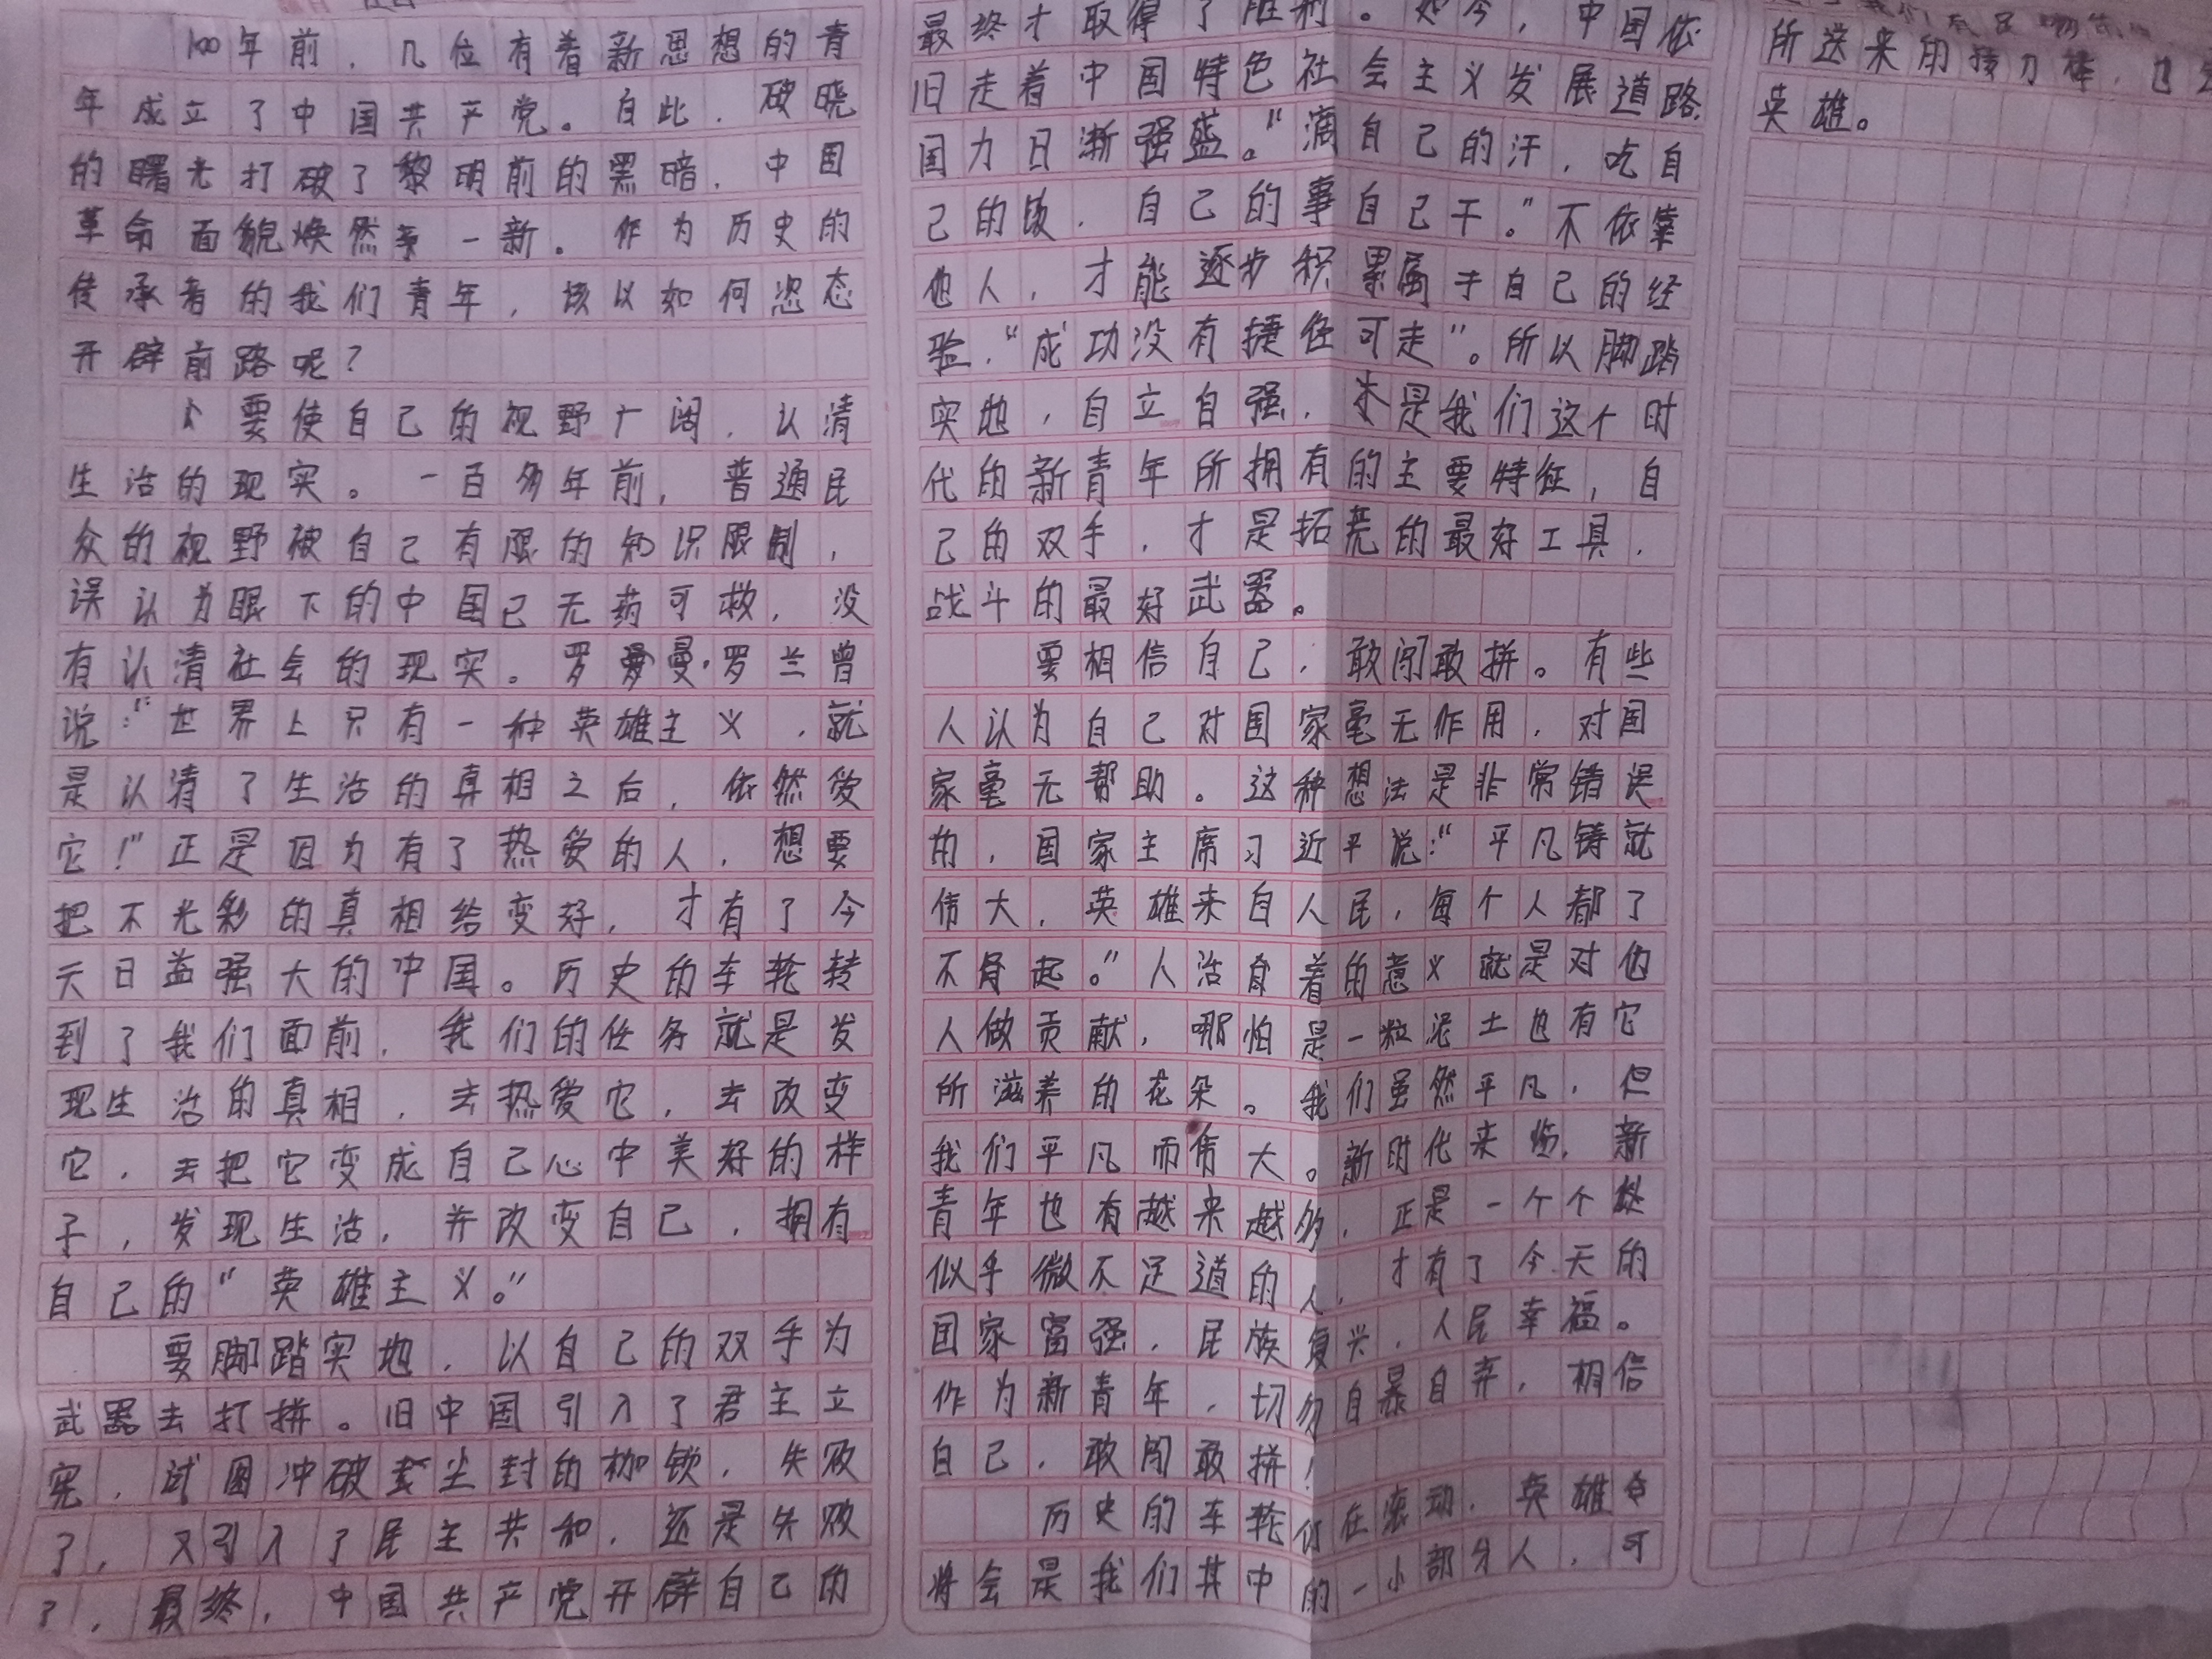 100年前，几位有着新思想的青
年成立了中国共产党。自此，破晓
的曙光打破了黎明前的黑暗，中国
革命面貌焕然一新。作为历史的
传承者的我们青年，该以如何恣态
开辟前路呢？
要使自己的视野广阔，认清
生活的现实。一百多年前，普通民
众的视野被自己有限的知识限制，
误认为眼下的中国已无药可救，没
有认清社会的现实。罗曼·罗兰曾
说：“世界上只有一种英雄主义，就
是认清了生活的真相之后，依然爱
它！”正是因为有了热爱的人，想要
把不光彩的真相给变好，才有了今
天日益强大的中国。历史的车轮转
到了我们面前，我们的任务就是发
现生活的真相，去热爱它，去改变
它，去把它变成自己心中美好的样
子，发现生活，并改变自己，拥有
自己的“英雄主义。”
要脚踏实地，以自己的双手为
武器去打拼。旧中国引入了君主立
宪，试图冲破尘封的枷锁，失败
了，又引入了民主共和，还是失败
了，最终，中国共产党开辟自己的
最终才取得了胜利。如今，中国依
旧走着中国特色社会主义发展道路，
国力日渐强盛。“滴自己的汗，吃自
己的饭，自己的事自己干。”不依靠
他人，才能逐步积累属于自己的经
验，“成功没有捷径可走”。所以脚踏
实地，自立自强，是我们这个时
代的新青年所拥有的主要特征，自
己的双手，才是拓荒的最好工具，
战斗的最好武器。
要相信自己，敢闯敢拼。有些
人认为自己对国家毫无作用，对国
家毫无帮助。这种想法是非常错误
的，国家主席习近平说：“平凡铸就
伟大，英雄来自人民，每个人都了
不起。”人活着的意义就是对他
人做贡献，哪怕是一粒泥土也有它
所滋养的花朵。我们虽然平凡，但
我们平凡而伟大。新时代来临，新
青年也有越来越多，正是一个个
似乎微不足道的人，才有了今天的
国家富强，民族复兴，人民幸福。
作为新青年，切勿自暴自弃，相信
自己，敢闯敢拼！
历史的车轮仍在滚动，英雄
将会是我们其中的一小部分人，可
所送来的接力棒，也
英雄。